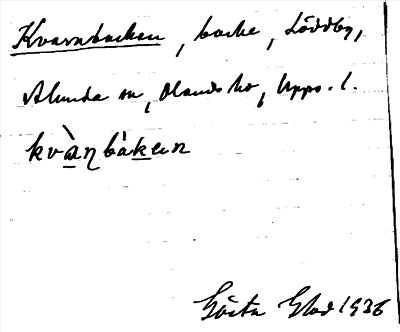 Kvarnbacken, backe, Löddby,
Alunda sn, Olands hd, Upps. l.
kvàṇbàken
Gösta Glad 1936